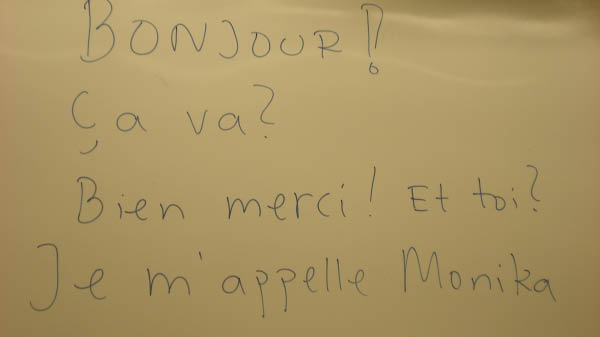 BONJOUR!
Ça va?
Bien merci! Et toi?
Je m'appelle Monika